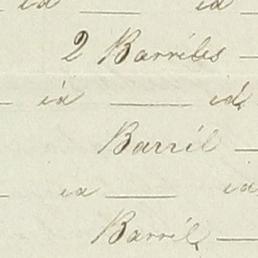 id id
2 Barriles
id id
Barril
id id
Barril